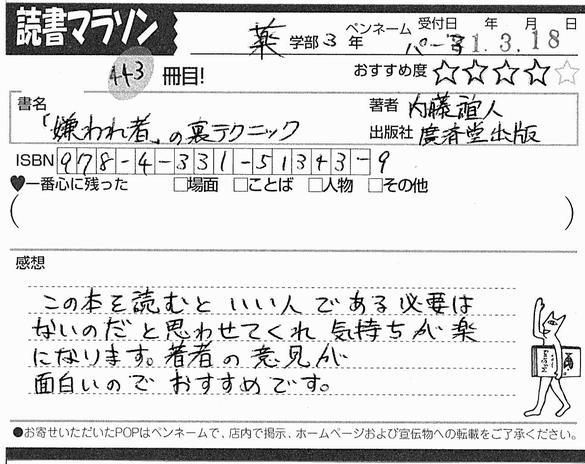 読書マラソン
薬 学部 3 年 ペンネーム パーマ 受付日 年 月 日
1.3.18
443 冊目! おすすめ度 ☆☆☆☆☆
書名
「嫌われ者」の裏テクニック
著者 内藤誼人
出版社 廣済堂出版
ISBN 978-4-331-51343-9
♥一番心に残った □場面 □ことば □人物 □その他
( )
感想
この本を読むと いい人である必要は
ないのだと思わせてくれ 気持ちが楽
になります。著者の意見が
面白いので おすすめです。
●お寄せいただいたPOPはペンネームで、店内で掲示、ホームページおよび宣伝物への転載をご了承ください。